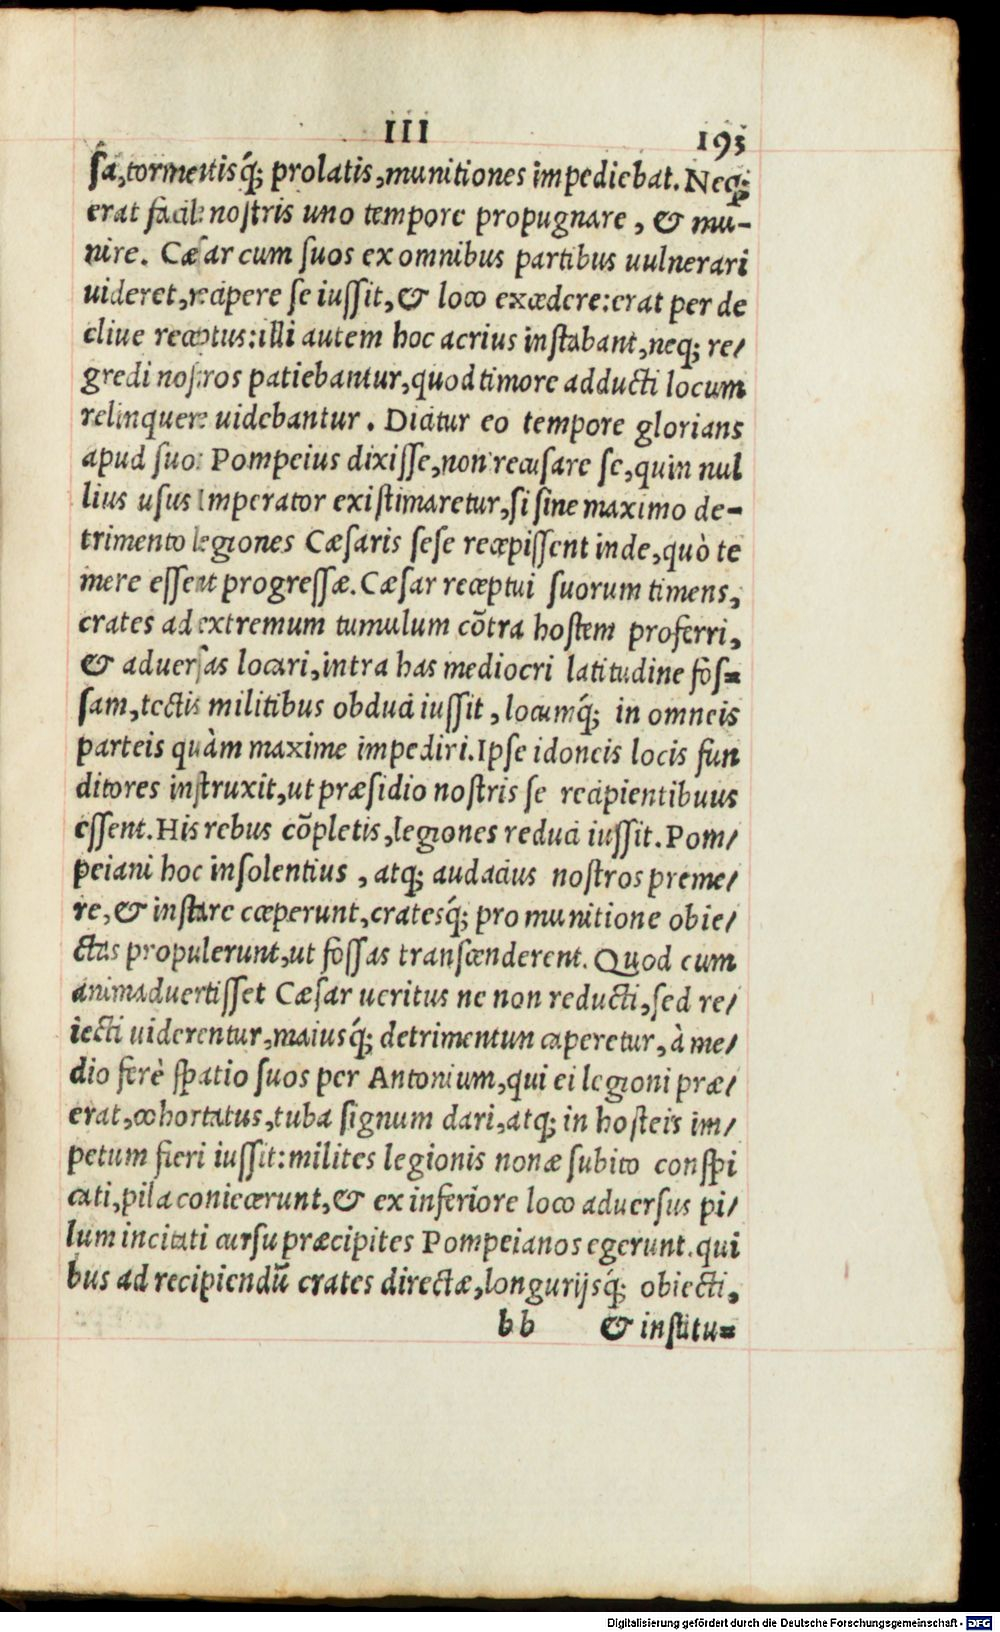 III 193
sa, tormentisq́; prolatis, munitiones impediebat. Neq;
erat facile nostris uno tempore propugnare, & mu-
nire. Cæsar cum suos ex omnibus partibus uulnerari
uideret, recipere se iussit, & loco excedere: erat per de
cliue receptus: illi autem hoc acrius instabant, neq; re/
gredi nostros patiebantur, quod timore adducti locum
relinquere uidebantur. Dicitur eo tempore glorians
apud suos Pompeius dixisse, non recusare se, quin nul
lius usus Imperator existimaretur, si sine maximo de-
trimento legiones Cæsaris sese recepissent inde, quò te
mere essent progressæ. Cæsar receptui suorum timens,
crates ad extremum tumulum cõtra hostem proferri,
& aduersas locari, intra has mediocri latitudine fos-
sam, tectis militibus obduci iussit, locumq́; in omneis
parteis quàm maxime impediri. Ipse idoneis locis fun
ditores instruxit, ut præsidio nostris se recipientibuus
essent. His rebus cõpletis, legiones reduci iussit. Pom/
peiani hoc insolentius, atq; audacius nostros preme/
re, & instare cœperunt, cratesq́; pro munitione obie/
ctas propulerunt, ut fossas transcenderent. Quod cum
animaduertisset Cæsar ueritus ne non reducti, sed re/
iecti uiderentur, maiusq́; detrimentun caperetur, à me/
dio ferè spatio suos per Antonium, qui ei legioni præ/
erat, cohortatus, tuba signum dari, atq; in hosteis im/
petum fieri iussit: milites legionis nonæ subito conspi
cati, pila coniecerunt, & ex inferiore loco aduersus pi/
lum incitati cursu præcipites Pompeianos egerunt. qui
bus ad recipiendũ crates directæ, longurijsq́; obiecti,
bb & institu-
Digitalisierung gefördert durch die Deutsche Forschungsgemeinschaft - DFG